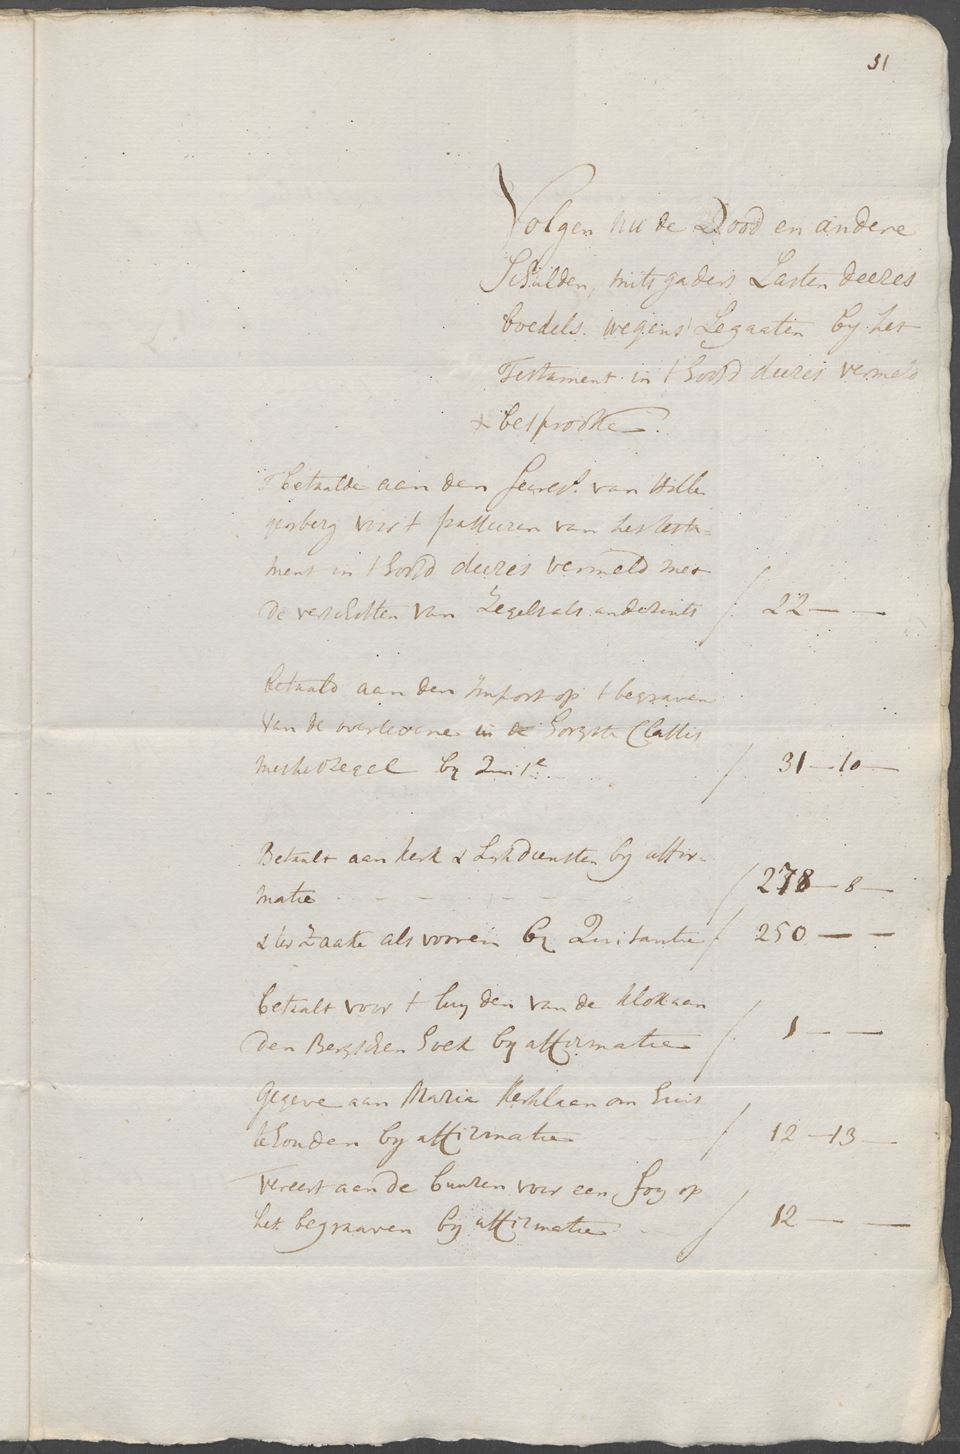 31
Volgen nu de Dood en andere
Schulden, mitsgaders Lasten deeses
boedels wegens Legaaten by het
Testament in t hoofd deeses vermeld
& besprooken.
betaalde aan den Secrets. van Hille
gersberg voor t passeeren van het testa=
ment in t hoofd deeses vermeld met
de verschotten van Zegels als andersints ƒ 22 — —
betaald aan den Impost op t begraven
van de overledene in de hoogste Classis
met het Zegel by Quite. ƒ 31 — 10 —
Betaalt aan kerk & Lykdiensten by affir-
matie ƒ 278 — 8 —
& ter Zaake als vooren by Quitantie ƒ 250 — —
betaalt voor t luyden van de klok aan
den Bergschen hoek by affirmatie ƒ 1 — —
Gegeve aan Maria Kerklaan om huis
te houden by affirmatie ƒ 12 — 13 —
Vereert aan de buuren voor een foy op
het begraaven by affirmatie ƒ 12 — —